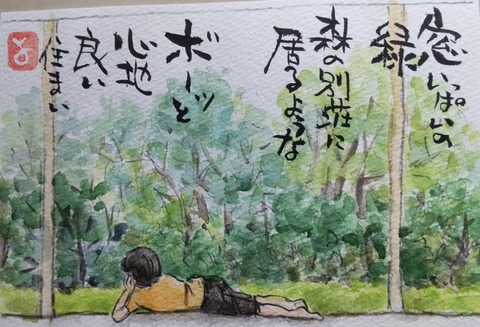 窓いっぱいの
緑
森の別荘に
居るような
ボーッと
心地
良い
住まい